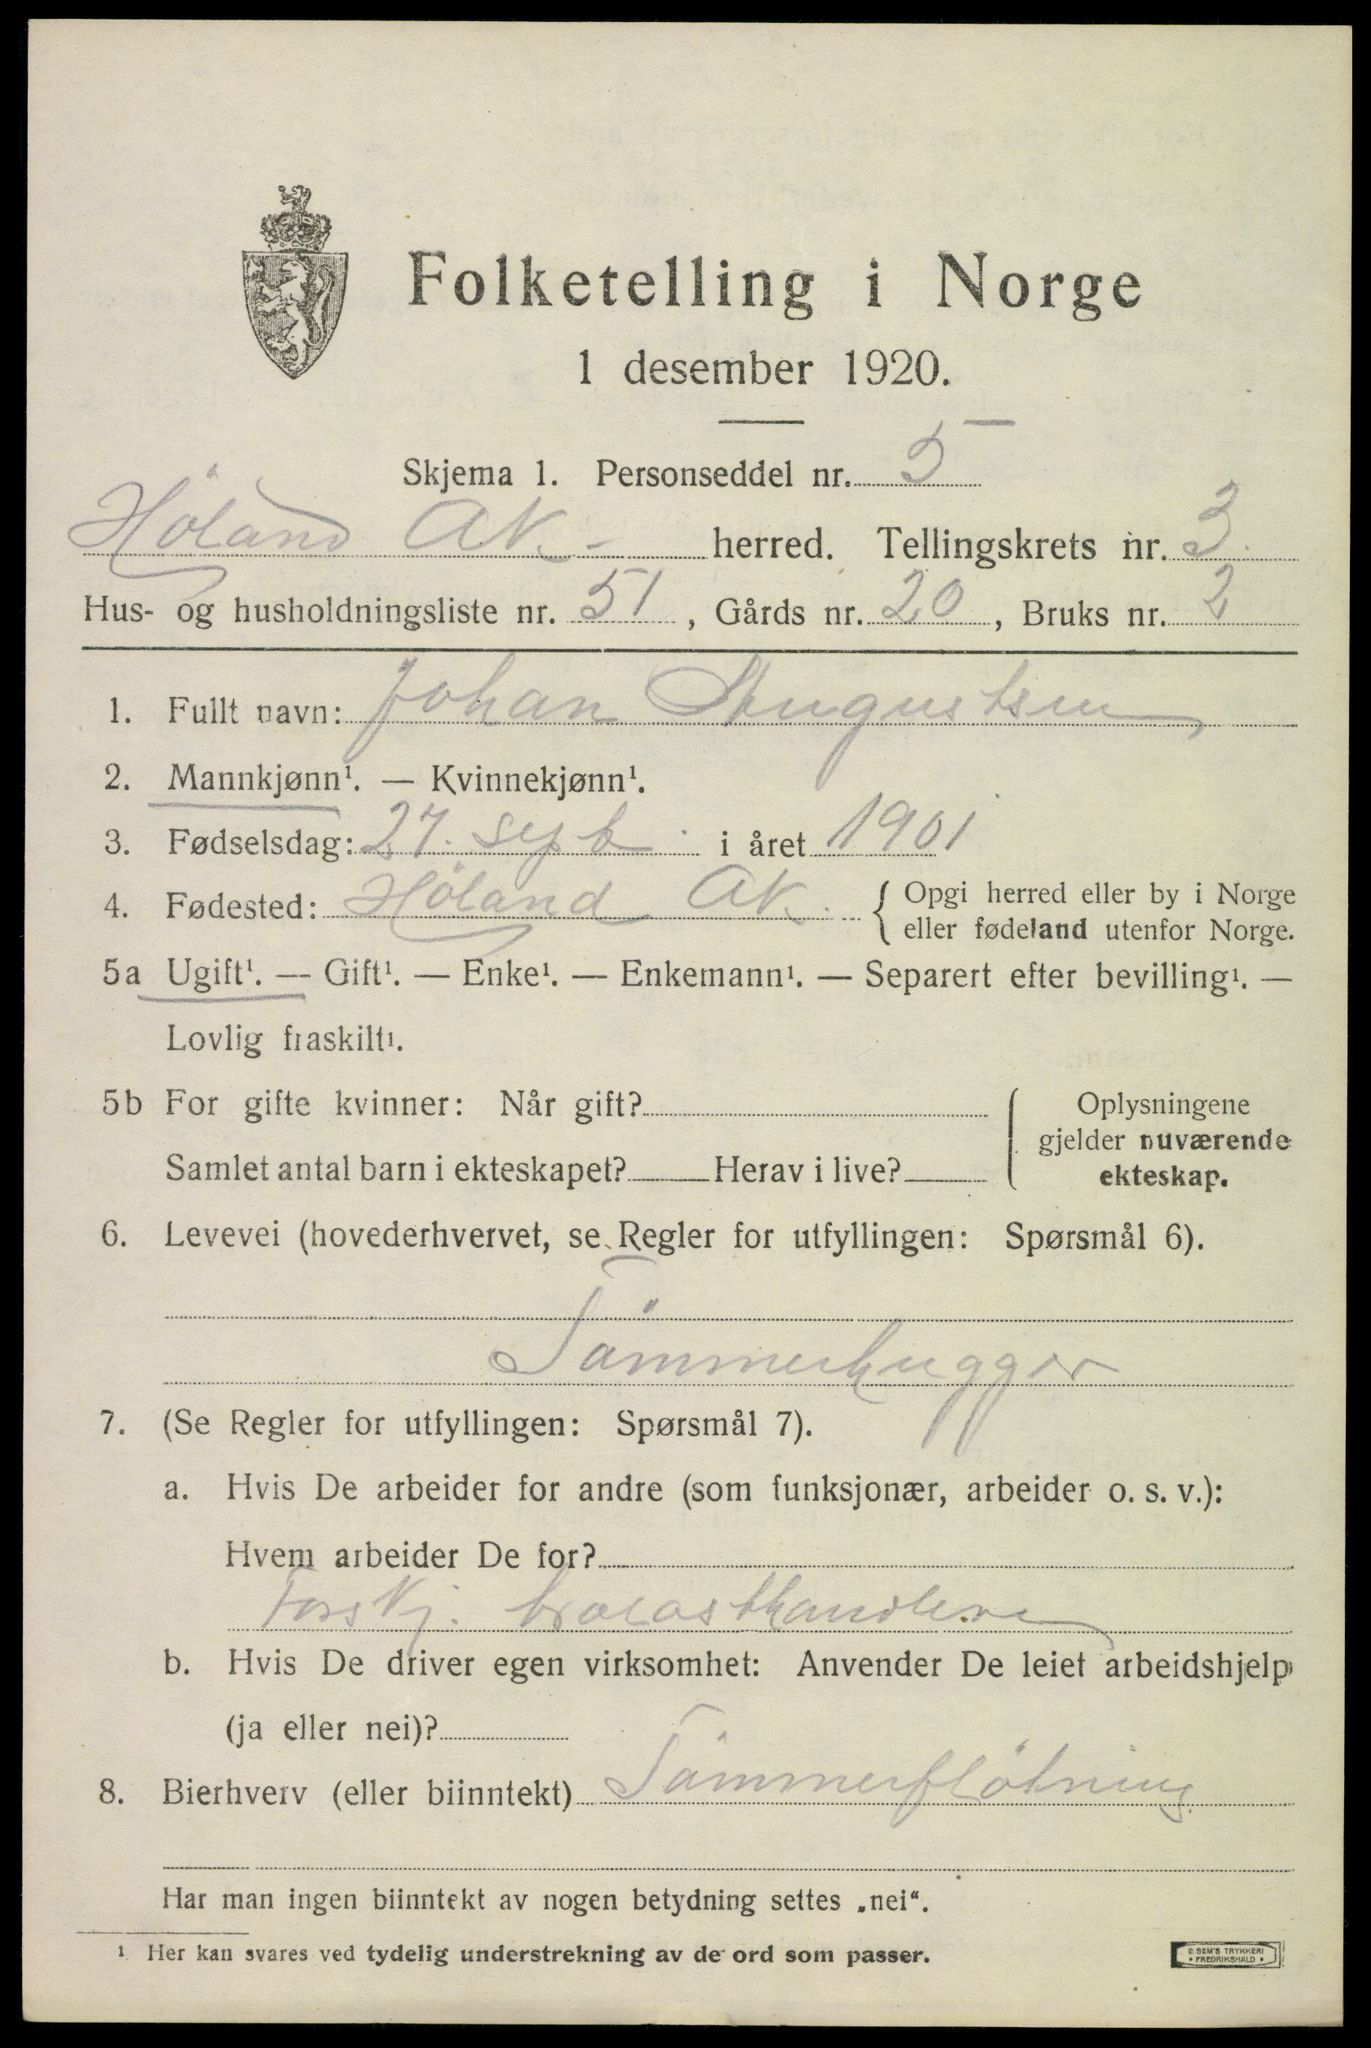 Folketelling i Norge
1 desember 1920.
Skjema 1. Personseddel nr. 5
Höland AK. - herred. Tellingskrets nr. 3.
Hus- og husholdningsliste nr. 51, Gårds nr. 20, Bruks nr. 2
1. Fullt navn: Johan Augustsen
2. Mannkjønn¹. — Kvinnekjønn¹.
3. Fødselsdag: 27. sept. i året 1901
4. Fødested: Höland AK. { Opgi herred eller by i Norge
eller fødeland utenfor Norge.
5a Ugift¹. — Gift¹. — Enke¹. — Enkemann¹. — Separert efter bevilling¹. —
Lovlig fraskilt¹.
5b For gifte kvinner: Når gift?
Samlet antal barn i ekteskapet? Herav i live?
Oplysningene
gjelder nuværende
ekteskap.
6. Levevei (hovederhvervet, se Regler for utfyllingen: Spørsmål 6).
Tömmerhugger
7. (Se Regler for utfyllingen: Spørsmål 7).
a. Hvis De arbeider for andre (som funksjonær, arbeider o. s. v.):
Hvem arbeider De for?
Forskj. trælasthandlere
b. Hvis De driver egen virksomhet: Anvender De leiet arbeidshjelp
(ja eller nei)?
8. Bierhverv (eller biinntekt) Tömmerflötning
Har man ingen biinntekt av nogen betydning settes „nei“.
¹ Her kan svares ved tydelig understrekning av de ord som passer.
E. SEM'S TRYKKERI
• FREDRIKSHALD •